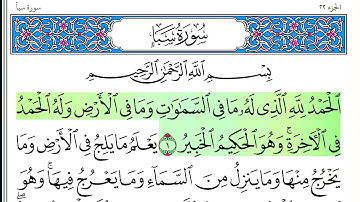 الجزء ٢٢
سورة سبأ
سُورَةُ سَبَإٍ
بِسْمِ ٱللَّهِ ٱلرَّحْمَٰنِ ٱلرَّحِيمِ
ٱلْحَمْدُ لِلَّهِ ٱلَّذِى لَهُۥ مَا فِى ٱلسَّمَٰوَٰتِ وَمَا فِى ٱلْأَرْضِ وَلَهُ ٱلْحَمْدُ
فِى ٱلْءَاخِرَةِ ۚ وَهُوَ ٱلْحَكِيمُ ٱلْخَبِيرُ ١ يَعْلَمُ مَا يَلِجُ فِى ٱلْأَرْضِ وَمَا
يَخْرُجُ مِنْهَا وَمَا يَنزِلُ مِنَ ٱلسَّمَآءِ وَمَا يَعْرُجُ فِيهَا ۚ وَهُوَ